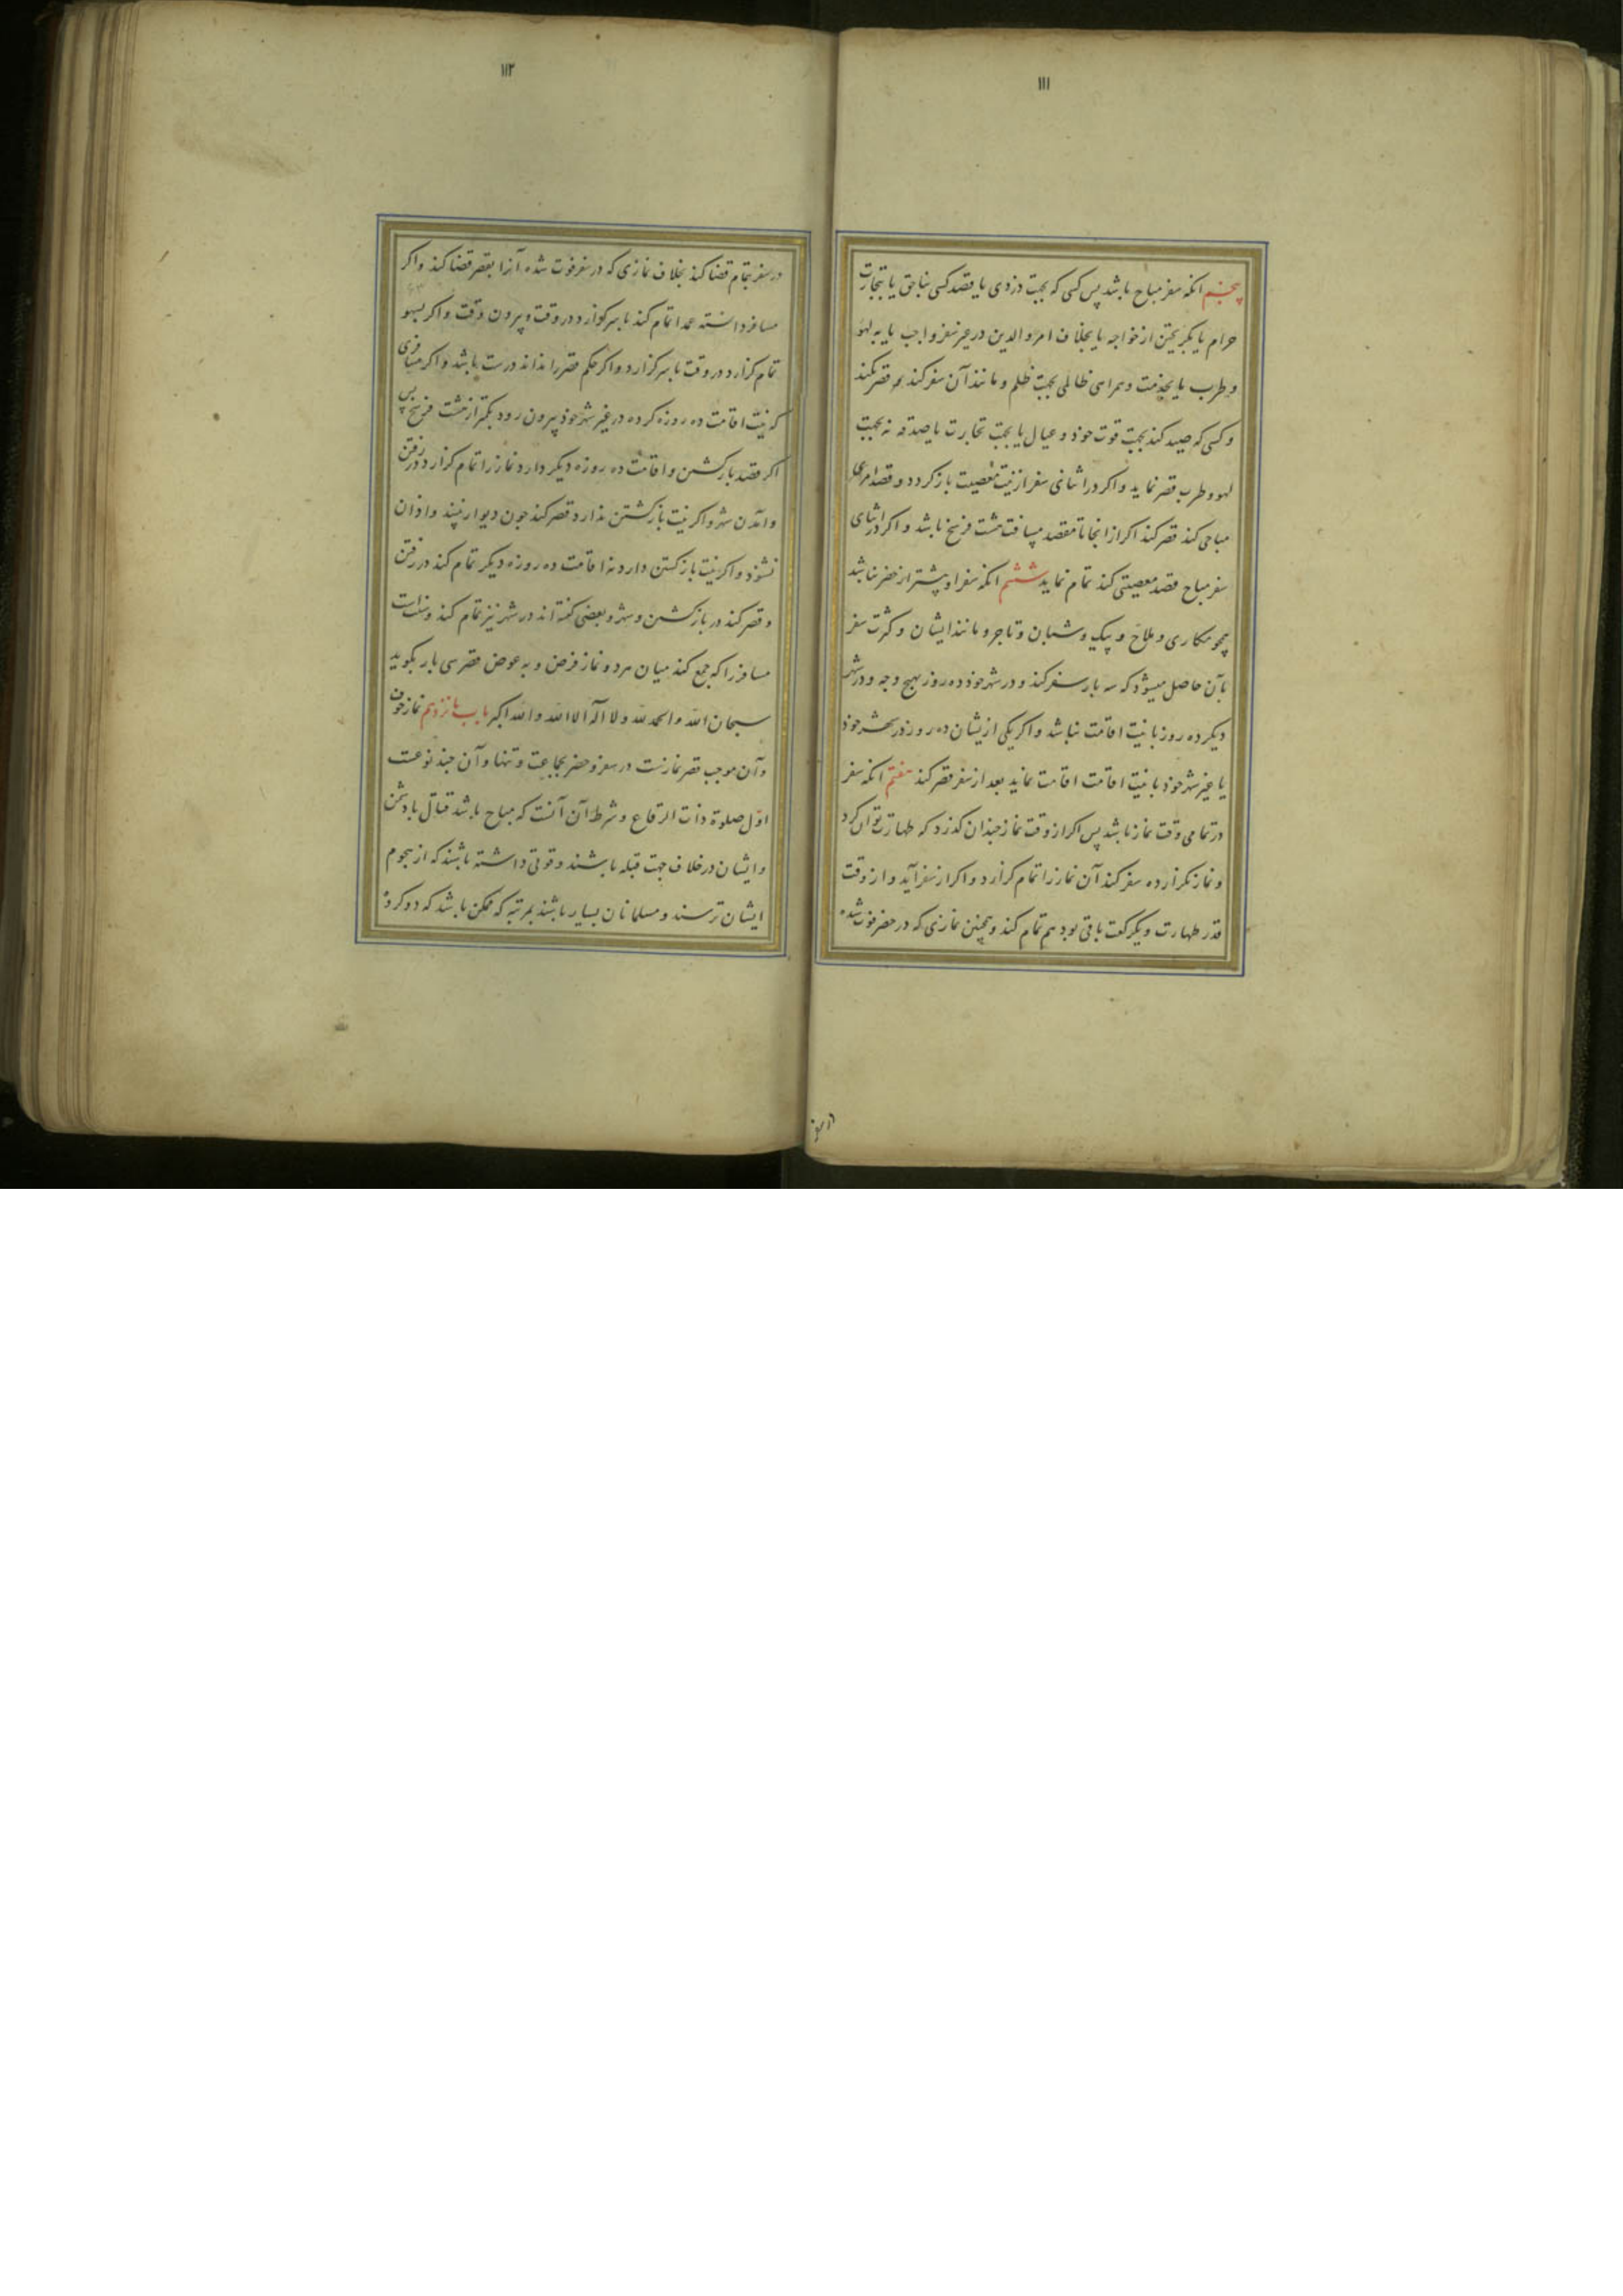 ۱۱۱
پنجم انکه سفر مباح باشد پس کسی که بجهت دزدی یا قصد کسی بناحق یا بتجارت
حرام یا بکریختن از خواجه یا بخلاف امر والدین در غیر سفر واجب یا به لهو
و طرب یا بخدمت و همراهی ظالمی بجهت ظلم و مانند آن سفر کند قصر نکند
و کسی که صید کند بجهت قوت خود و عیال یا بجهت تجارت یا صدقه نه بجهت
لهو و طرب قصر نماید و اکر در اثنای سفر از نیت معصیت باز کردد و قصد امری
مباحی کند قصر کند اکر از انجا تا مقصد مسافت هشت فرسخ باشد و اکر در اثنای
سفر مباح قصد معصیتی کند تمام نماید ششم انکه سفر او بیشتر از حضر نباشد
همچو مکاری و ملاح و پیک و شبان و تاجر و مانند ایشان و کثرت سفر
بآن حاصل میشود که سه بار سفر کند و در شهر خود ده روز بهیچ وجه و در شهر
دیکر ده روز با نیت اقامت نباشد و اکر یکی ازیشان ده روز در شهر خود
یا غیر شهر خود با نیت اقامت اقامت نماید بعد از سفر قصر کند هفتم انکه سفر
در تمامی وقت نماز باشد پس اکر از وقت نماز چندان کذرد که طهارت توان کرد
و نماز نکزارده سفر کند آن نماز را تمام کزارد و اکر از سفر آید و از وقت
قدر طهارت و یکرکعت باقی بود هم تمام کند و همچنین نمازی که در حضر فوت شده
در سفر
۱۱۲
در سفر بتمام قضا کند بخلاف نمازی که در سفر فوت شده آنرا بقصر قضا کند و اکر
مسافر دانسته عمدا تمام کند باسر کزارد در وقت و بیرون وقت و اکر بسهو
تمام کزارد در وقت باسر کزارد و اکر حکم قصر را نداند درست باشد و اکر مسافری
که نیت اقامت ده روزه کرده در غیر شهر خود بیرون رود بکمتر از هشت فرسخ پس
اکر قصد باز کشتن و اقامت ده روزه دیکر دارد نماز را تمام کزارد در رفتن
و آمدن شهر و اکر نیت باز کشتن ندارد قصر کند چون دیوار نبیند و اذان
نشنود و اکر نیت باز کشتن دارد نه اقامت ده روزه دیکر تمام کند در رفتن
و قصر کند در باز کشتن و شهر و بعضی کفته اند در شهر نیز تمام کند و سنت است
مسافر را که جمع کند میان هر دو نماز فرض و به عوض قصر سی بار بکوید
سبحان الله والحمد لله ولا اله الا الله والله اکبر باب پانزدهم نماز خوف
و آن موجب قصر نمازست در سفر و حضر بجماعت و تنها و آن چند نوعست
اول صلوة ذات الرقاع و شرط آن آنست که مباح باشد قتال با دشمن
و ایشان در خلاف جهت قبله باشند و قوتی داشته باشند که از هجوم
ایشان ترسند و مسلمانان بسیار باشند بمرتبه که ممکن باشد که دو کروه